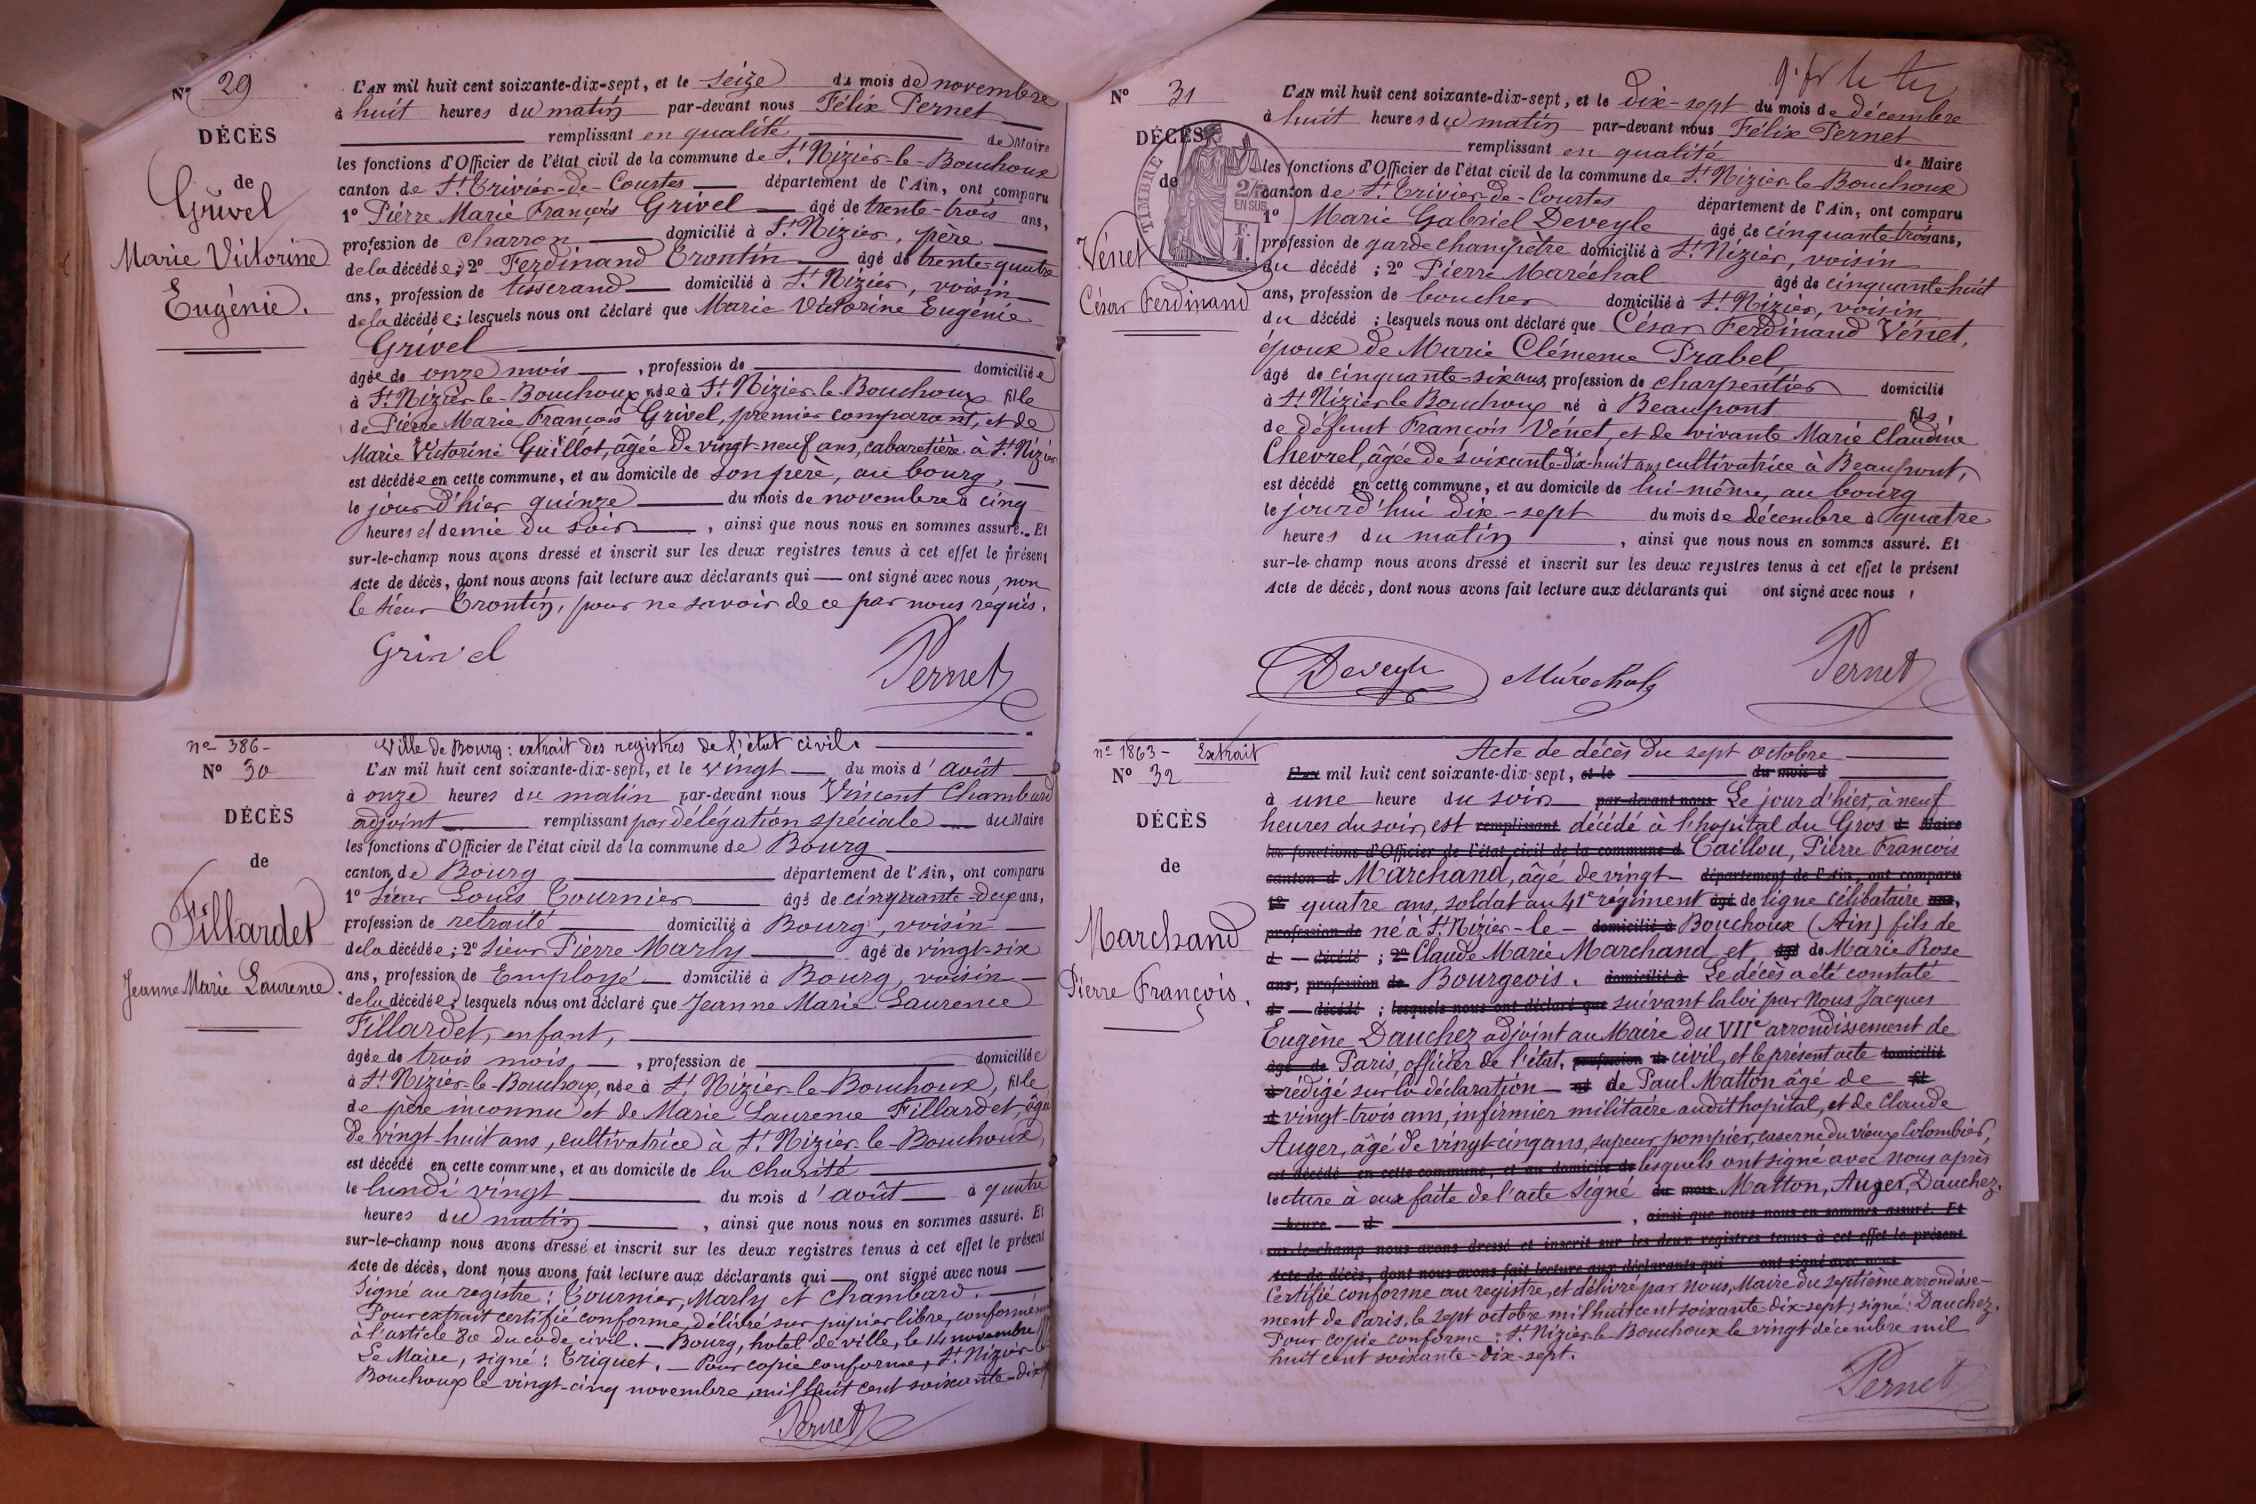 Nº 29
DÉCÈS
de
Grivel
Marie Victorine
Eugénie.
L'AN mil huit cent soixante-dix-sept, et le seize du mois de novembre
à huit heures du matin par-devant nous Félix Pernet
remplissant en qualité de Maire
les fonctions d'Officier de l'état civil de la commune de St Nizier-le-Bouchoux
canton de St Trivier-de-Courtes département de l'Ain, ont comparu
1º Pierre Marie François Grivel âgé de trente-trois ans,
profession de charron domicilié à St Nizier, père
de la décédée; 2º Ferdinand Trontin âgé de trente-quatre
ans, profession de tisserand domicilié à St Nizier, voisin
de la décédée; lesquels nous ont déclaré que Marie Victorine Eugénie
Grivel
âgée de onze mois, profession de domiciliée
à St Nizier-le-Bouchoux née à St Nizier-le-Bouchoux fille
de Pierre Marie François Grivel, premier comparant, et de
Marie Victorine Guillot, âgée de vingt-neuf ans, cabaretière à St Nizier
est décédée en cette commune, et au domicile de son père, au bourg,
le jour d'hier quinze du mois de novembre à cinq
heures et demie du soir, ainsi que nous nous en sommes assuré. Et
sur-le-champ nous avons dressé et inscrit sur les deux registres tenus à cet effet le présent
Acte de décès, dont nous avons fait lecture aux déclarants qui ont signé avec nous, non
le sieur Trontin, pour ne savoir de ce par nous requis.
Grivel Pernet
nº 386-
Nº 30
DÉCÈS
de
Fillardet
Jeanne Marie Laurence.
Ville de Bourg: extrait des registres de l'état civil.
L'AN mil huit cent soixante-dix-sept, et le vingt du mois d'août
à onze heures du matin par-devant nous Vincent Chambard
adjoint remplissant par délégation spéciale du Maire
les fonctions d'Officier de l'état civil de la commune de Bourg
canton de Bourg département de l'Ain, ont comparu
1º Sieur Louis Tournier âgé de cinquante-deux ans,
profession de retraité domicilié à Bourg, voisin
de la décédée; 2º Sieur Pierre Marly âgé de vingt-six
ans, profession de Employé domicilié à Bourg, voisin
de la décédée; lesquels nous ont déclaré que Jeanne Marie Laurence
Fillardet, enfant,
âgée de trois mois, profession de domiciliée
à St Nizier-le-Bouchoux, née à St Nizier-le-Bouchoux, fille
de père inconnu et de Marie Laurence Fillardet, âgée
de vingt-huit ans, cultivatrice à St Nizier-le-Bouchoux,
est décédé en cette commune, et au domicile de la Charité
le lundi vingt du mois d'août à quatre
heures du matin, ainsi que nous nous en sommes assuré. Et
sur-le-champ nous avons dressé et inscrit sur les deux registres tenus à cet effet le présent
Acte de décès, dont nous avons fait lecture aux déclarants qui ont signé avec nous
Signé au registre: Tournier, Marly et Chambard.
Pour extrait certifié conforme, délivré sur papier libre, conformément
à l'article 80 du code civil. Bourg, hotel de ville, le 14 novembre
Le Maire, signé: Triquet. Pour copie conforme, St Nizier-le
Bouchoux le vingt-cinq novembre mil huit cent soixante-dix
Pernet
Nº 31
DÉCÈS
de
TIMBRE
2/10
EN SUS
F.
1.
Vénet
César Ferdinand
L'AN mil huit cent soixante-dix-sept, et le dix-sept du mois de décembre
à huit heures du matin par-devant nous Félix Pernet
remplissant en qualité de Maire
les fonctions d'Officier de l'état civil de la commune de St Nizier-le-Bouchoux
canton de St Trivier-de-Courtes département de l'Ain, ont comparu
1º Marie Gabriel Deveyle âgé de cinquante trois ans,
profession de garde champêtre domicilié à St Nizier, voisin
du décédé; 2º Pierre Maréchal âgé de cinquante huit
ans, profession de boucher domicilié à St Nizier, voisin
du décédé; lesquels nous ont déclaré que César Ferdinand Vénet,
époux de Marie Clémence Prabel
âgé de cinquante-six ans, profession de charpentier domicilié
à St Nizier le Bouchoux né à Beaupont fils,
de défunt François Vénet, et de vivante Marie Claudine
Chevrel, âgée de soixante-dix-huit ans cultivatrice à Beaupont,
est décédé en cette commune, et au domicile de lui-même, au bourg
le jourd'hui dix-sept du mois de décembre à quatre
heures du matin, ainsi que nous nous en sommes assuré. Et
sur-le-champ nous avons dressé et inscrit sur les deux registres tenus à cet effet le présent
Acte de décès, dont nous avons fait lecture aux déclarants qui ont signé avec nous,
Deveyle Maréchal Pernet
nº 1863- Extrait
Nº 32
DÉCÈS
de
Marchand
Pierre François.
Acte de décès du sept octobre
L'AN mil huit cent soixante-dix-sept, et le du mois d
à une heure du soir par-devant nous Le jour d'hier, à neuf
heures du soir, est remplissant décédé à l'hopital du Gros d Maire
les fonctions d'Officier de l'état civil de la commune d Caillou, Pierre François
canton d Marchand, âgé de vingt- département de l'Ain, ont comparu
1º quatre ans, soldat au 41e régiment âgé de ligne célibataire ans,
profession de né à St Nizier-le- domicilié à Bouchoux (Ain) fils de
d décédé; 2º Claude Marie Marchand, et âgé de Marie Rose
ans, profession de Bourgeois. domicilié à Le décès a été constaté
d décédé; lesquels nous ont déclaré que suivant la loi par Nous Jacques
Eugène Dauchez adjoint au Maire du VIIe arrondissement de
âgé de Paris, officier de l'état, profession de civil, et le présent acte domicilié
à rédigé sur la déclaration né de Paul Matton âgé de fil
d vingt-trois ans, infirmier militaire audit hopital, et de Claude
Auger, âgé de vingt-cinq ans, sapeur pompier, caserne du vieux Colombier,
est décédé en cette commune, et au domicile de lesquels ont signé avec nous après
lecture à eux faite de l'acte Signé du mois Matton, Auger, Dauchez.
heure d, ainsi que nous nous en sommes assuré. Et
sur-le-champ nous avons dressé et inscrit sur les deux registres tenus à cet effet le présent
Acte de décès, dont nous avons fait lecture aux déclarants qui ont signé avec nous
Certifié conforme au registre, et délivré par Nous, Maire du septième arrondisse-
ment de Paris, le sept octobre mil huit cent soixante-dix-sept; signé: Dauchez.
Pour copie conforme: St Nizier-le-Bouchoux le vingt décembre mil
huit cent soixante-dix-sept.
Pernet